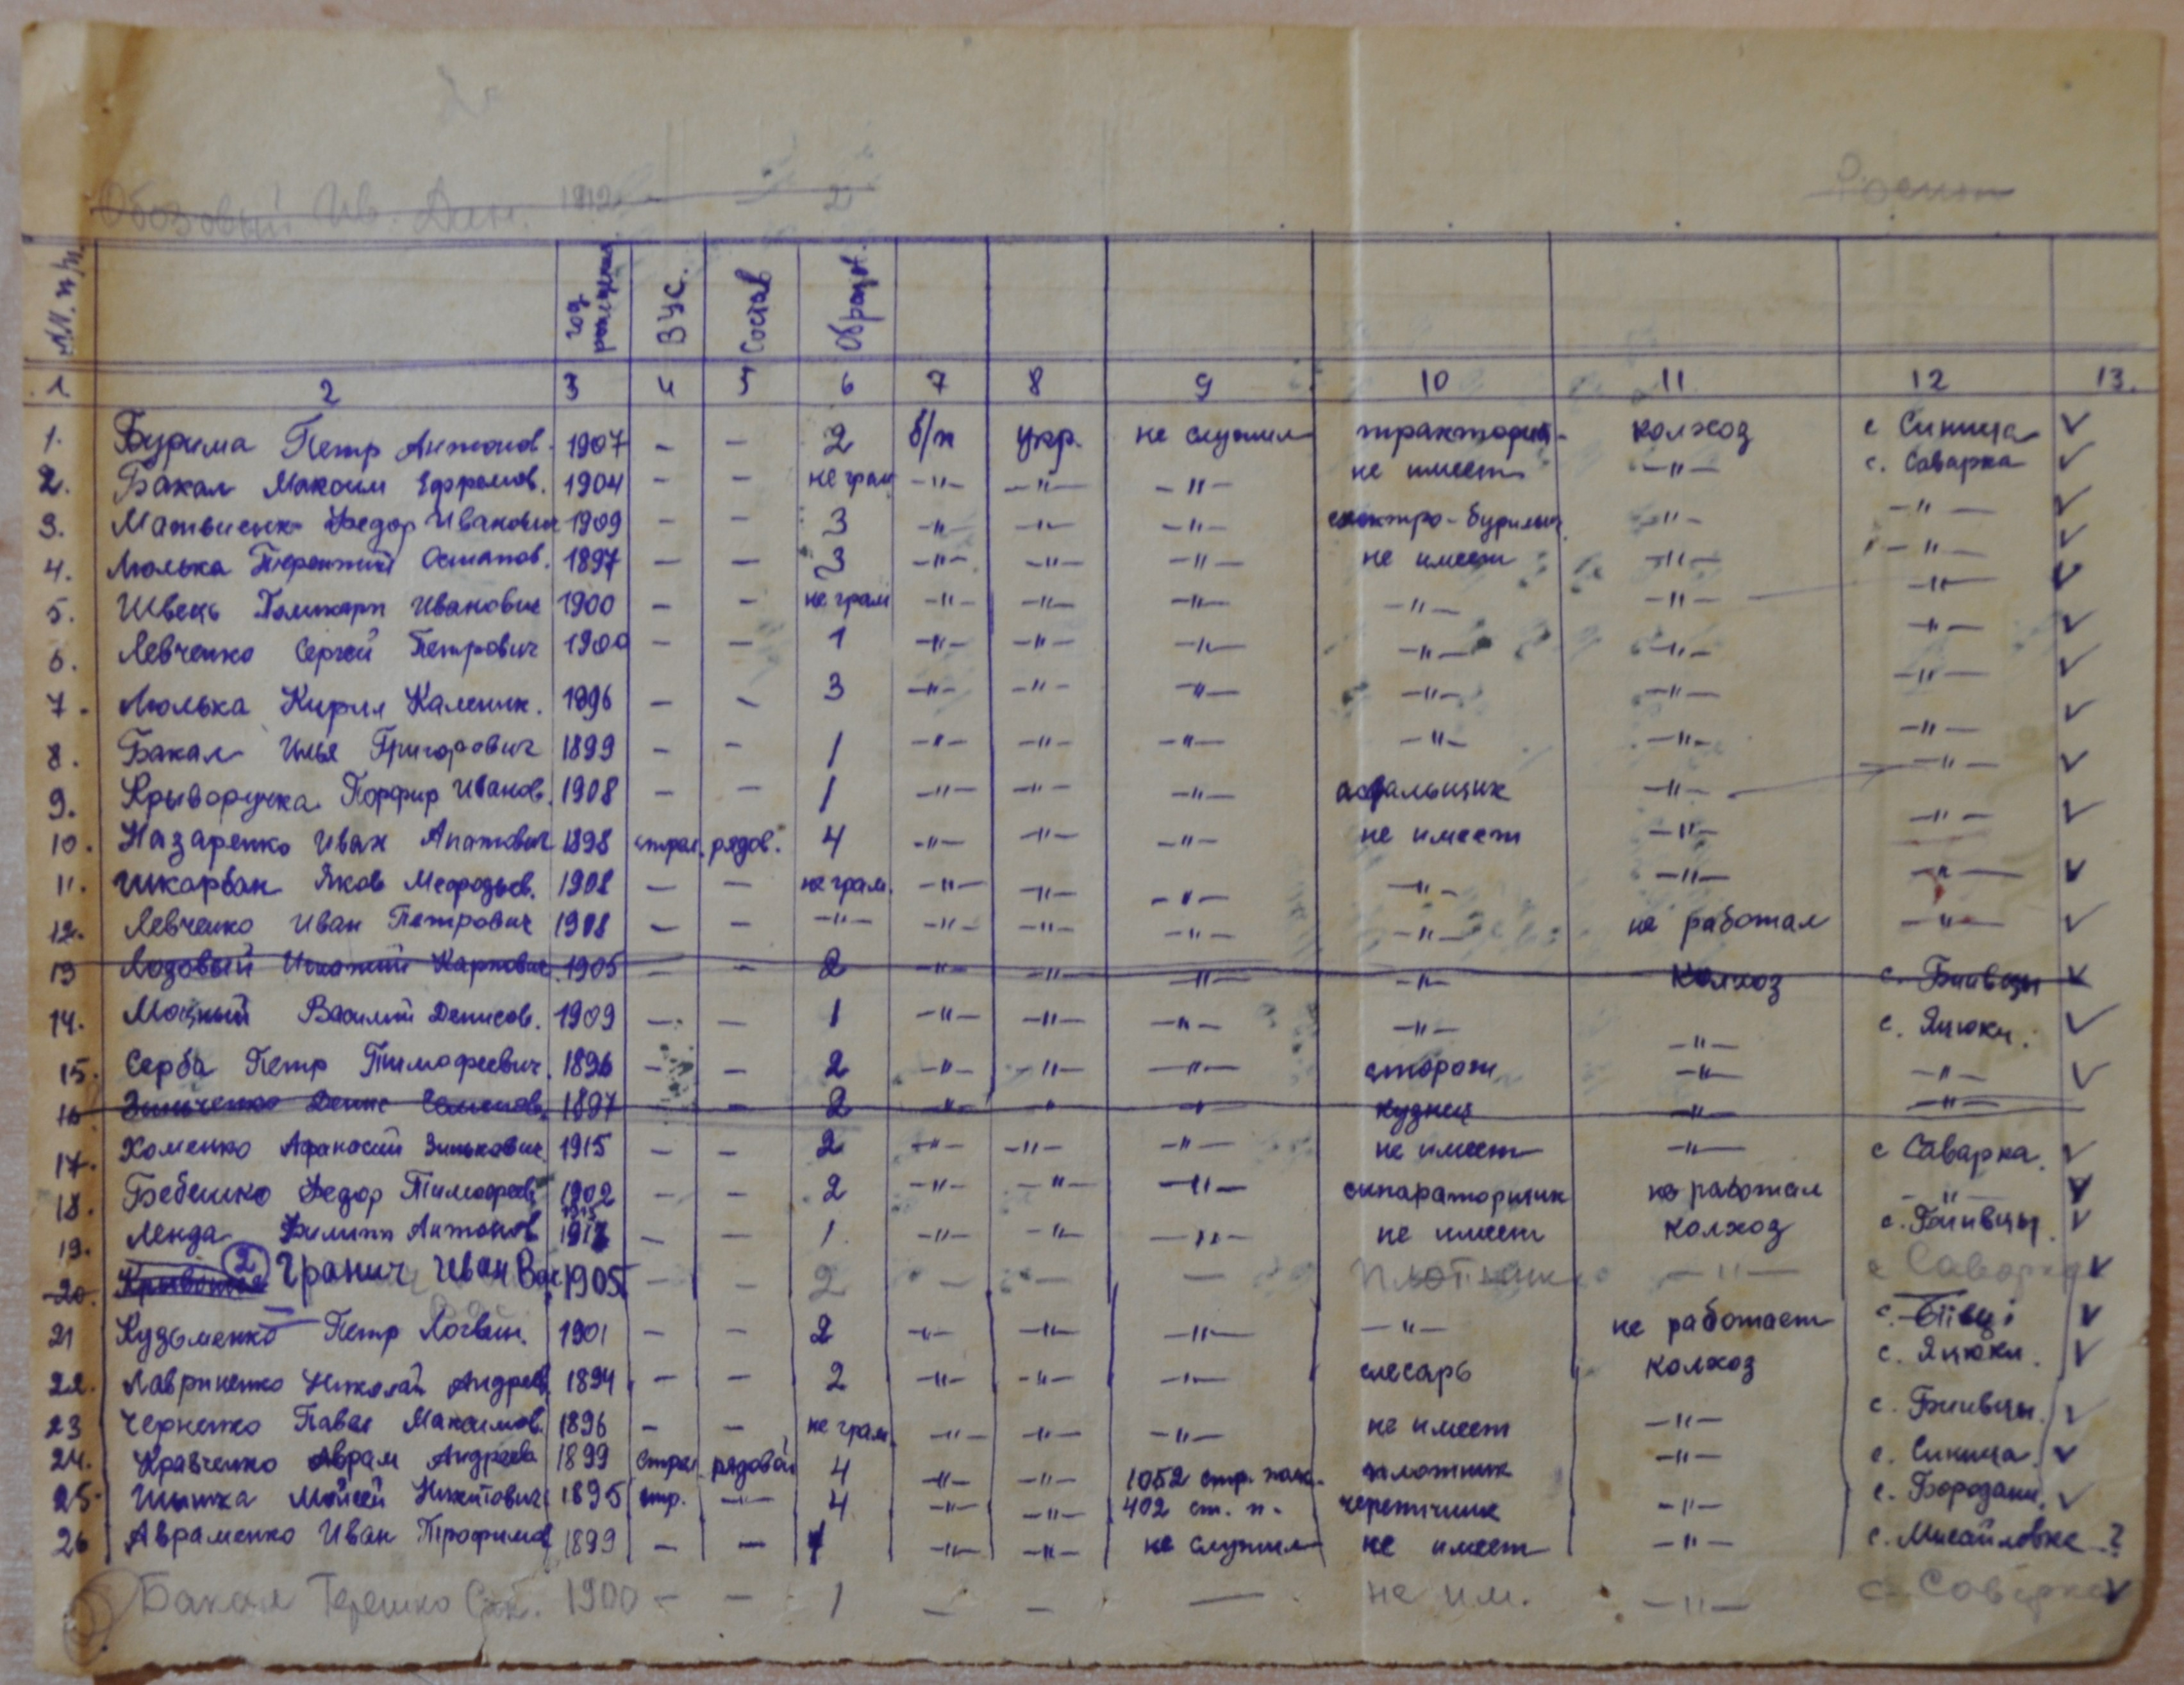 Обозовый Ив. Дем. 1912 — — 2
№№ п/п. год рождения ВУС. Состав Образов.
1 2 3 4 5 6 7 8 9 10 11 12 13.
1. Бурима Петр Антонов. 1907 — — 2 б/п укр. не служил колхоз с Синица ✓
2. Бакал Максим Ефремов. 1904 — — не грам —"— —"— —"— не имеет —"— с. Саварка ✓
3. Матвиенко Федор Иванович 1909 — — 3 —"— —"— —"— электро-бурильщ. —"— —"— ✓
4. Люлька Терентий Остапов. 1897 — — 3 —"— —"— —"— не имеет —"— —"— ✓
5. Швець Поликарп Иванович 1900 — — не грам —"— —"— —"— —"— —"— —"— ✓
6. Левченко Сергей Петрович 1900 — — 1 —"— —"— —"— —"— —"— —"— ✓
7. Люлька Кирил Каленик. 1896 — — 3 —"— —"— —"— —"— —"— —"— ✓
8. Бакал Илья Григорович 1899 — — 1 —"— —"— —"— —"— —"— —"— ✓
9. Крыворучка Порфир Иванов. 1908 — — 1 —"— —"— —"— —"— —"— ✓
10. Назаренко Иван Апатович 1898 стрел. рядов. 4 —"— —"— —"— не имеет —"— —"— ✓
11. Шкарбан Яков Мефодьев. 1908 — — не грам. —"— —"— —"— —"— —"— —"— ✓
12. Левченко Иван Петрович 1908 — — —"— —"— —"— —"— —"— не работал —"— ✓
13 Лозовый Игнатий Карпович 1905 — — 2 —"— —"— —"— —"— колхоз с. Бшвцы ✓
14. Моцный Василий Денисов. 1909 — — 1 —"— —"— —"— —"— —"— с. Яцюки. ✓
15. Серба Петр Тимофеевич. 1896 — — 2 —"— —"— —"— сторож —"— —"— ✓
16 Зинченко Денис Семенов. 1897 — 2 —"— " —"— кузнец —"— —"—
17. Хоменко Афанасий Зинькович 1915 — — 2 —"— —"— —"— не имеет —"— с Саварка. ✓
18. Бебешко Федор Тимофеев 1902 — — 2 —"— —"— —"— сипараторщик не работал —"— ✓
19. Ленда Филипп Антонов 1913 — — 1. —"— —"— —"— не имеет колхоз ✓
20. ② Гранич Иван Вас 1905 — — 2 — — — плотник —"— с Саварка ✓
21 Кузьменко Петр Логвин. 1901 — — 2 —"— —"— —"— —"— не работает с. Бiiвцi ✓
22. Лавриненко Николай Андреев. 1894 — — 2 —"— —"— —"— слесарь колхоз с. Яцюки. ✓
23 Черненко Павел Максимов. 1896 — — не грам. —"— —"— —"— не имеет —"— ✓
24. Кравченко Аврам Андреев 1899 Стрел рядовой 4 —"— —"— 1052 стр. полк. плотник —"— с. Синица. ✓
25. Мойсей Никитович 1895 стр. —"— 4 —"— —"— 402 ст. п. —"— с. Бородани. ✓
26 Авраменко Иван Трофимов 1899 — — 1 —"— —"— не служил не имеет —"— с. Михайловке ?
Бакал Терешко 1900 — — 1 — — — не им. —"— с. Саварка ✓